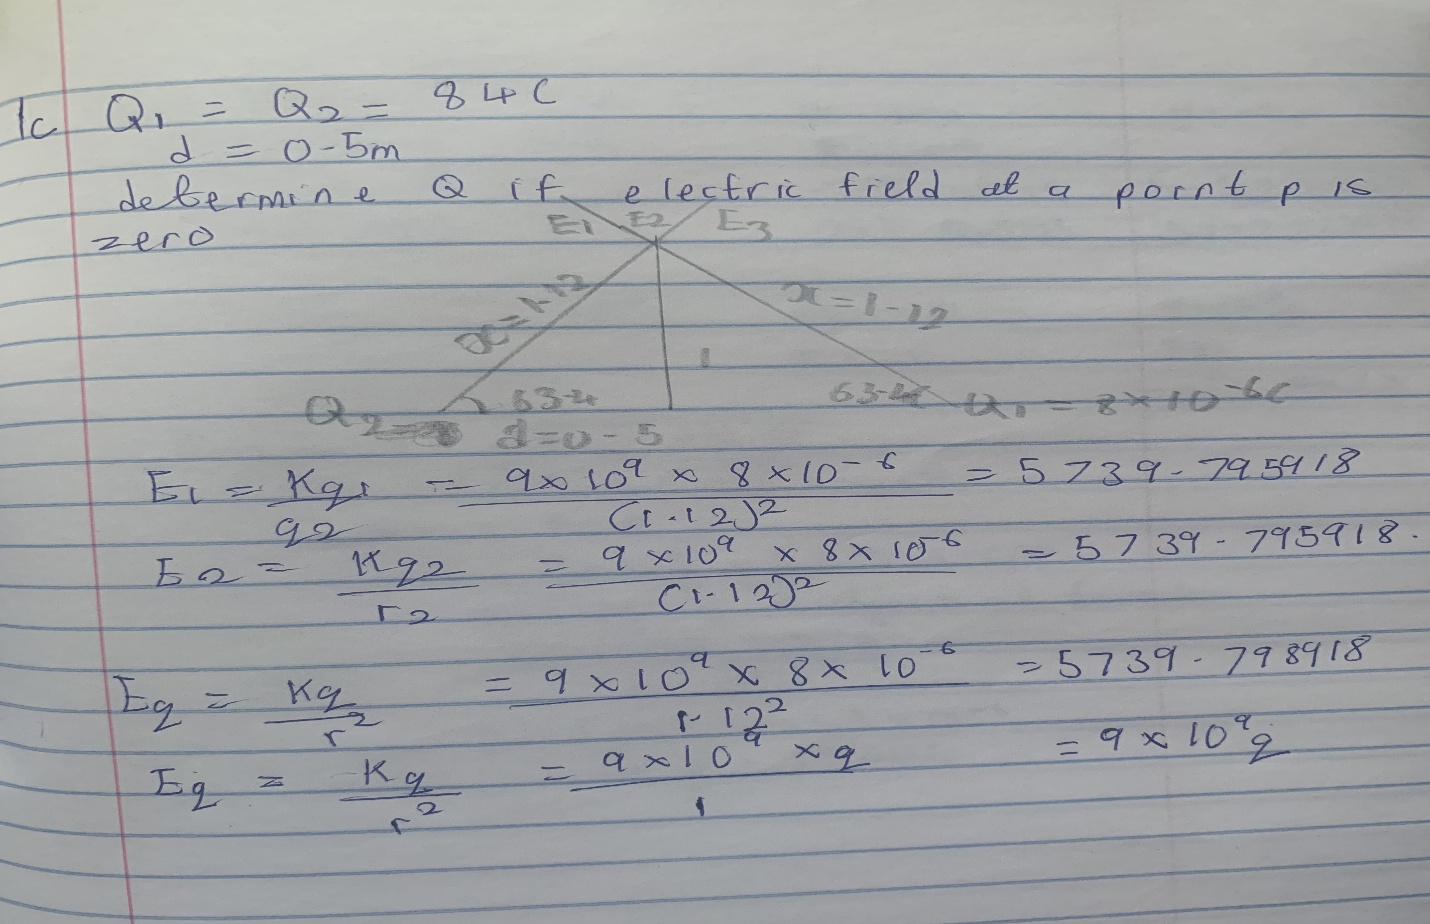 1c Q1 = Q2 = 84C
d = 0-5m
determine Q if electric field at a point p is
zero
E1 E2 E3
x=1-12 x=1-12
1
Q2 63-4 63-4 Q1 = 8×10-6C
d=0-5
E1 = Kq1/q2 = 9×10⁹ × 8×10-6/(1.12)2 = 5739-795918
E2 = Kq2/r2 = 9×10⁹ × 8×10-6/(1-12)2 = 5739-795918.
Eq = Kq/r2 = 9×10⁹ × 8×10-6/1-12² = 5739-798918
Eq = Kq/r2 = 9×10⁹ × q/1 = 9×10⁹q